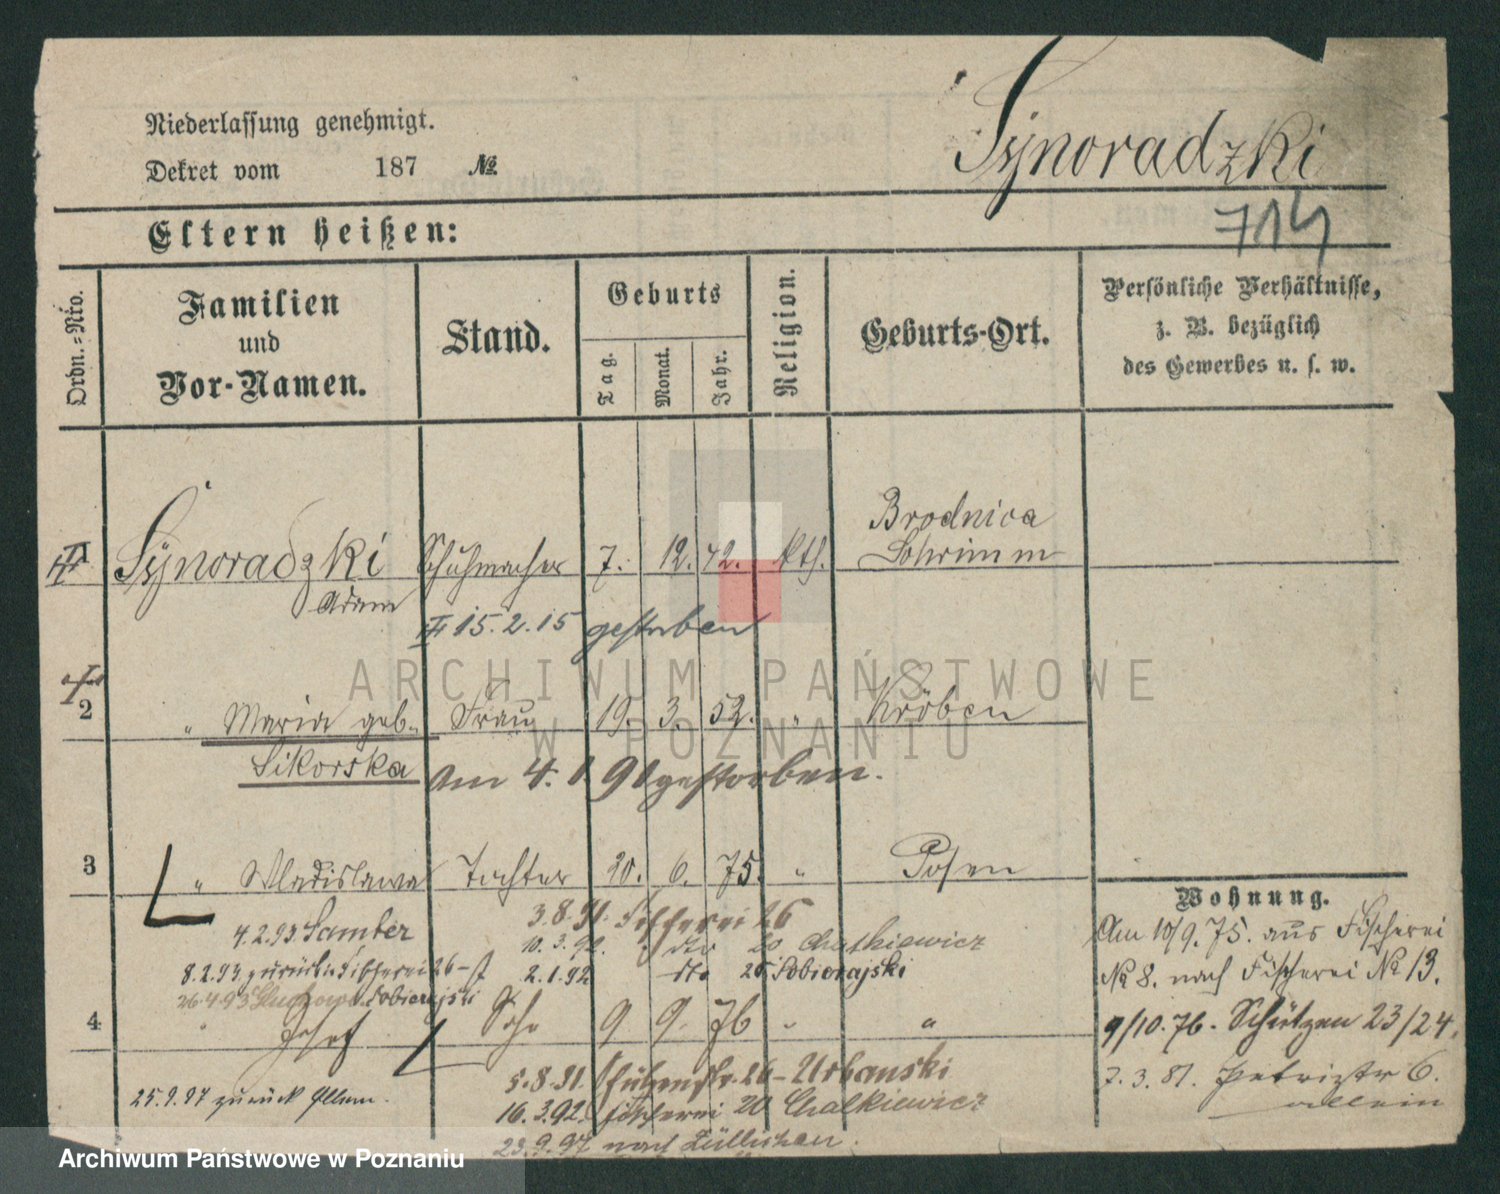 Niederlassung genehmigt.
Dekret vom 187 №
Synoradzki
714
Eltern heißen:
Ordn.-Nro.
Familien und Vor-Namen.
Stand.
Geburts
Tag.
Monat.
Jahr.
Religion.
Geburts-Ort.
Persönliche Verhältnisse,
z. B. bezüglich
des Gewerbes u. s. w.
Brodnica
Synoradzki Schuhmacher 7. 12. 42. kth. Schrimm
Adam
15.2.15 gestorben
2 " Maria geb. Frau 19. 3. 52. " Kröben
Sikorska am 4.1.91 gestorben.
3 " Wladislawa Tochter 20. 6. 75. " Posen
4.2.93 Samter
3.8.91. Fischerei 26
10.3.92. dto 20 Chalkiewicz
8.2.93 zurück Fischerei 26
2.1.92 dto 26 Sobierajski
26.4.93 Sobierajski
4 " Josef Sohn 9 9. 76 " "
5.8.91. Schützenstr. 26 - Urbanski
25.9.97 zurück
16.3.92. Fischerei 20 Chalkiewicz
23.9.97 nach Züllichau.
Wohnung.
Am 10/9.75. aus Fischerei
№ 8. nach Fischerei № 13.
9/10.76. Schützen 23/24.
7.3.81. Petristr 6.
allein
ARCHIWUM PAŃSTWOWE
W POZNANIU
Archiwum Państwowe w Poznaniu